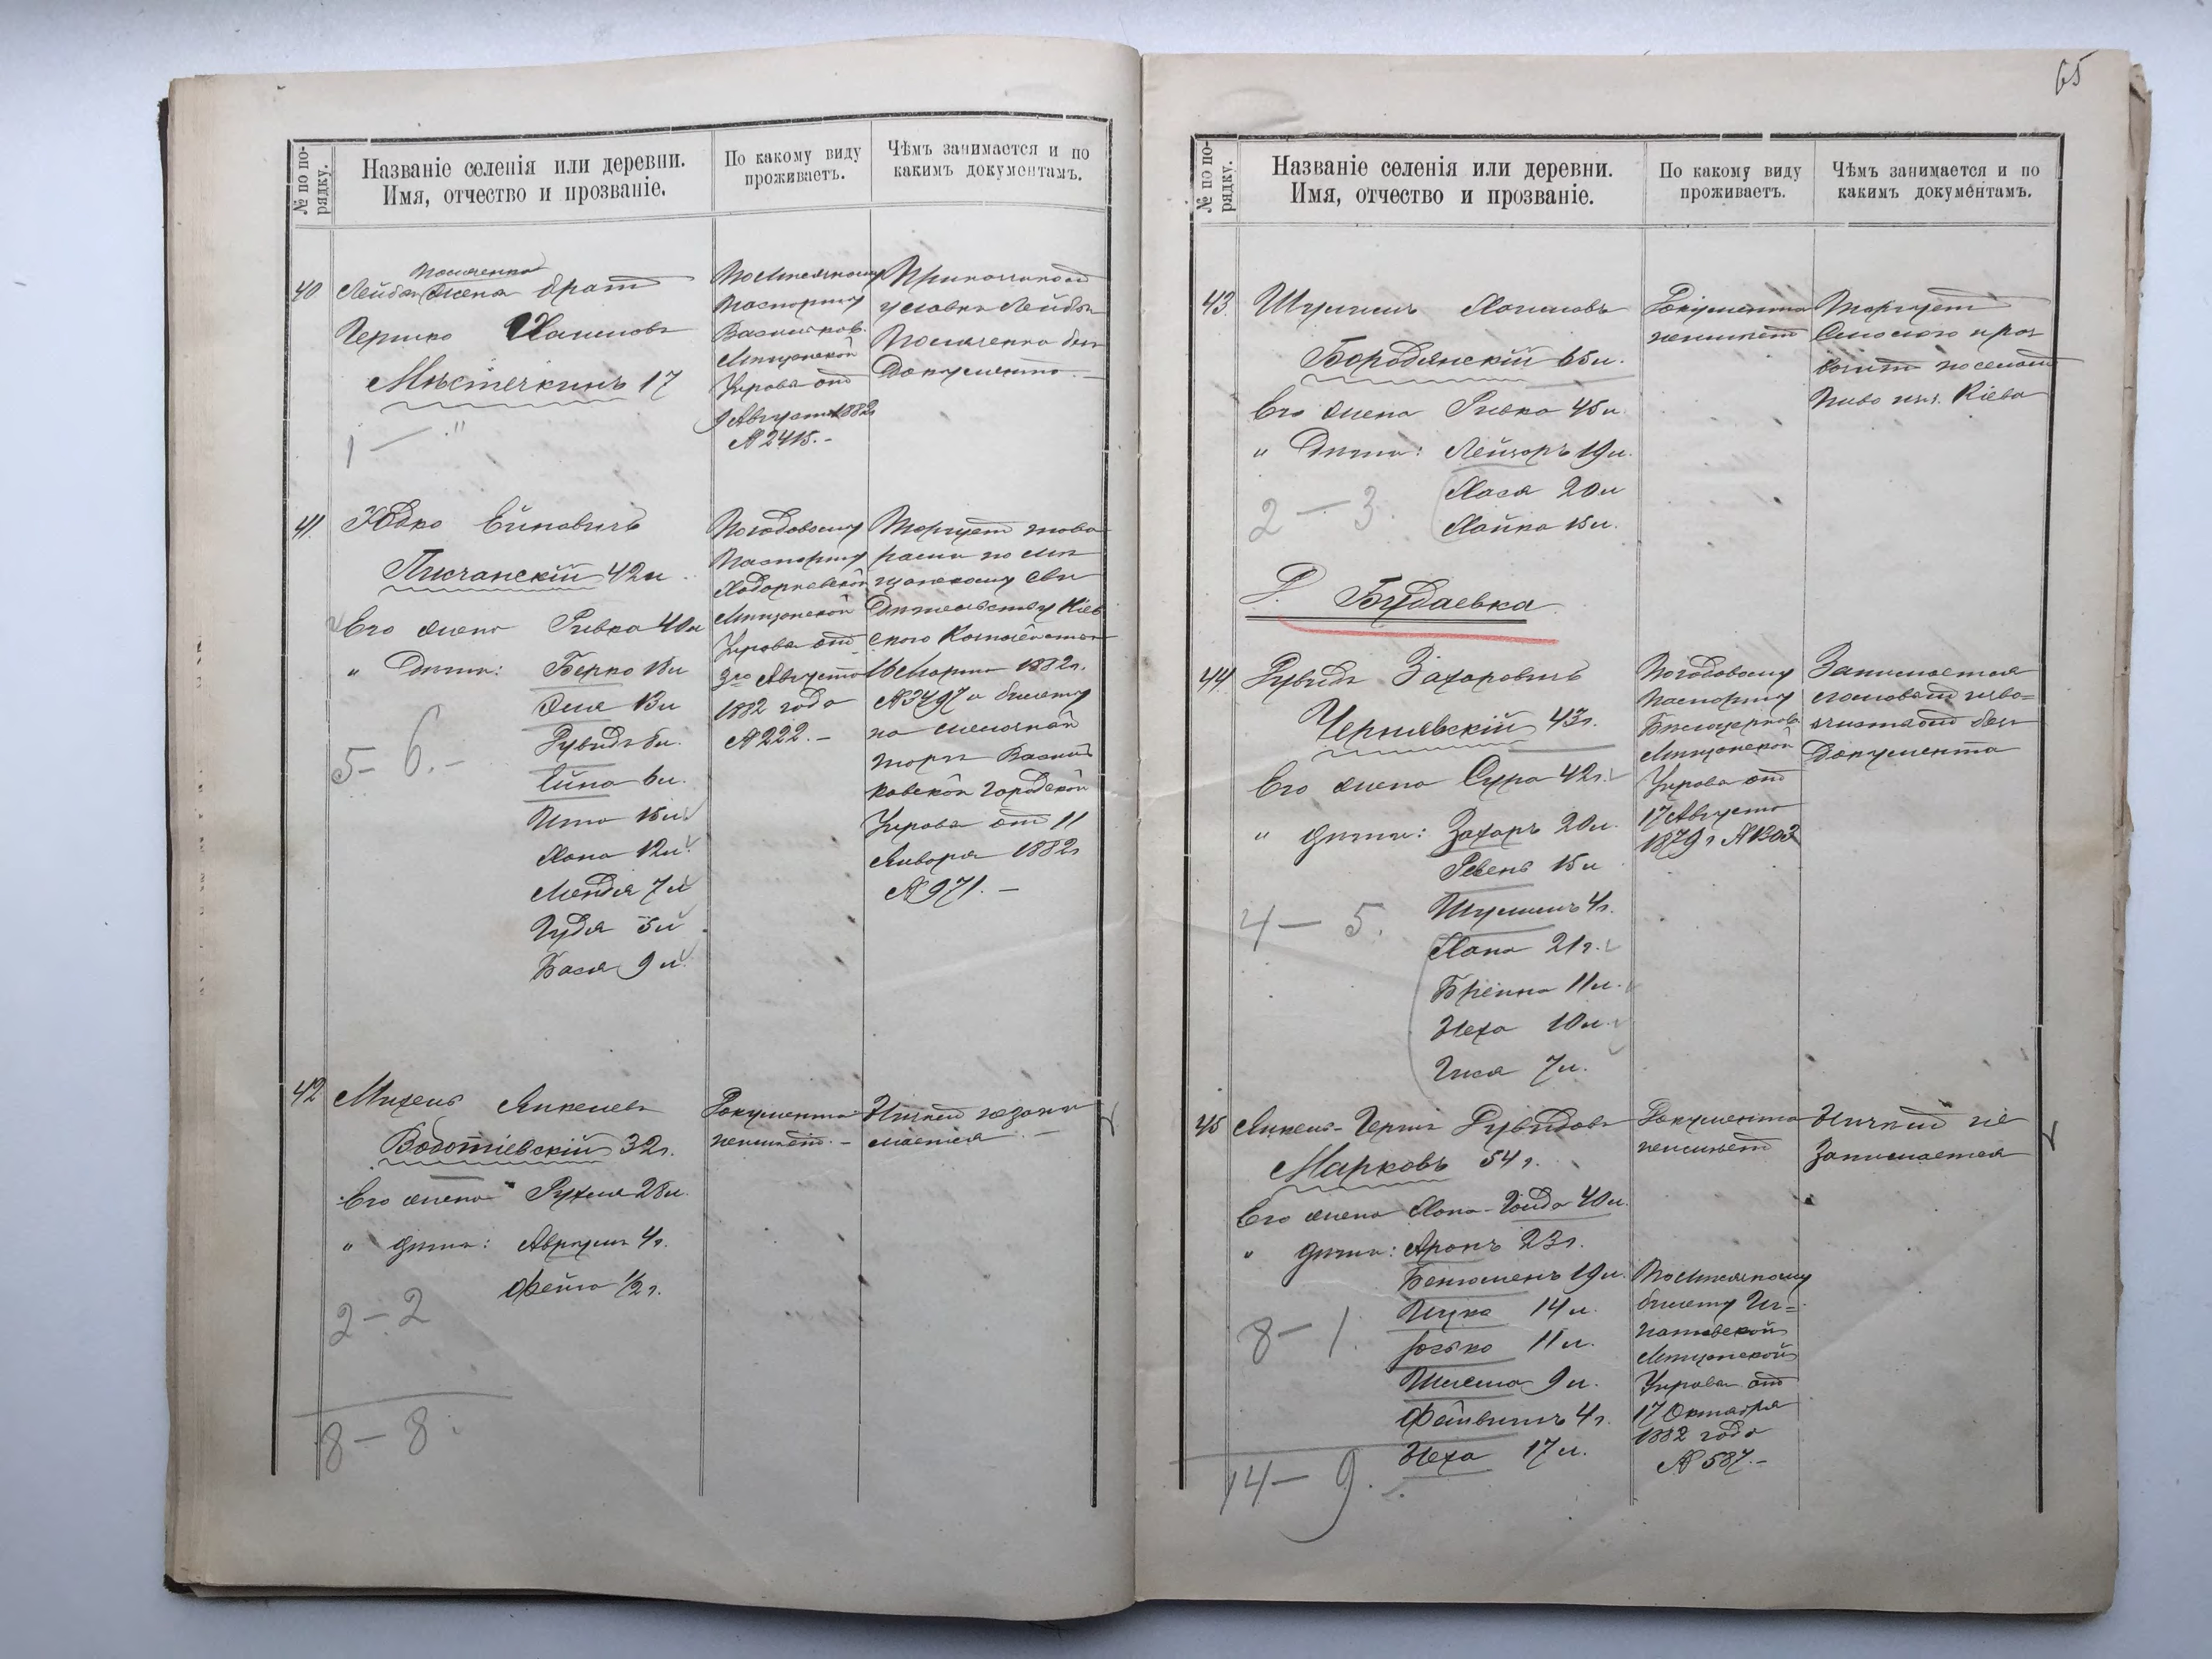 65
№ по по-
рядку.
Названіе селенія или деревни.
Имя, отчество и прозваніе.
По какому виду
проживаетъ.
Чѣмъ занимается и по
какимъ документамъ.
40
Лейба
братъ
Гершко Хаимовъ
Мѣстечкинъ 17
1 — "
Паспорту
Васильков.
Мѣщанской
Управы отъ
9 Августа 1882
№ 2415. –
Документа. –
41.
Юдко Ейновичъ
Писчанскій 42 л.
Его жена Ривка 40 л
" Дѣти: Берко 18 л
13 л
Рувидъ 8 л.
Ейна 6 л.
Ита 15 л.
Хана 12 л.
Мендя 7 л
Гудя 5 л
Бася 9 л.
5 – 6. –
Погодовому
Паспорту
Ходорковской
Мѣщанской
Управы отъ
3го Августа
1882 года
№ 222. –
Торгуетъ това
рами по мѣ
щанскому сви
дѣтельству Кіев
скаго Казначейства
Марта 1882 г.
№ 3497 и билету
на мелочной
торгъ Василь
ковской Городской
Управы отъ 11
Января 1882 г
№ 971. –
42
Михель Янкелевъ
Водотіевскій 32 г.
Его жена Рухля 28 л.
" дѣти: Аврумъ 4 г.
Фейга 1/2 г.
2 – 2
8 – 8.
Документа
неимѣетъ. –
Ничѣмъ незани
мается. –
№ по по-
рядку.
Названіе селенія или деревни.
Имя, отчество и прозваніе.
По какому виду
проживаетъ.
Чѣмъ занимается и по
какимъ документамъ.
43.
Шулимъ Хаимовъ
Бородянскій 65 л.
Его жена Ривка 45 л.
" Дѣти: Лейзоръ 19 л.
Хася 20 л
Хайка 15 л.
2 – 3.
Документа
неимѣетъ
Торгуетъ
и раз
возитъ по селамъ
пиво изъ Кіева
Д. Будаевка
44.
Рувидъ Захаровичъ
Чернявскій 43 г.
Его жена Сура 42 г.
" дѣти: Захаръ 20 л.
Рувенъ 15 л
Шулимъ 4 г.
Хана 21 г.
Брейна 11 л.
Неха 10 л.
Гися 7 л.
4 – 5.
Погодовому
Паспорту
Бѣлоцерков
Мѣщанской
Управы отъ
17 Августа
1879 г № 1303
Занимается
документа
45
Янкель-Гершъ Рувидовъ
Марковъ 54 г.
Его жена Хана-Гольда 40 л.
" дѣти: Аронъ 23 г.
Беньюменъ 19 л.
Ицко 14 л.
Іосько 11 л.
Шлема 9 л.
Файвишъ 4 г.
Неха 17 л.
8 – 1.
14 – 9.
Документа
неимѣетъ
билету Иг=
натовской
Мѣщанской
Управы отъ
17 Октября
1882 года
№ 587. –
Ничѣмъ не
занимается